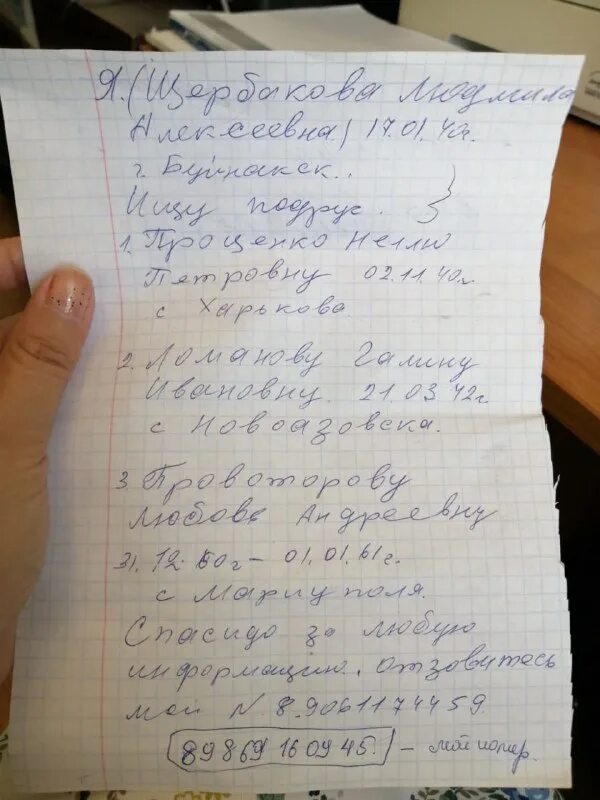 Я. (Щербакова Людмила
Алексеевна) 17.01.40г.
г. Буйнакск.
Ищу подруг.
1. Проценко Неллю
Петровну 02.11.40г.
с Харькова
2. Ломанову Галину
Ивановну. 21.03.42г.
с Новоазовска.
3 Провоторову
Любовь Андреевну
31.12.60г - 01.01.61г.
с Мариуполя.
Спасибо за любую
информацию. отзовитесь
мой N 8.9061174459.
89869160945. - мой номер.